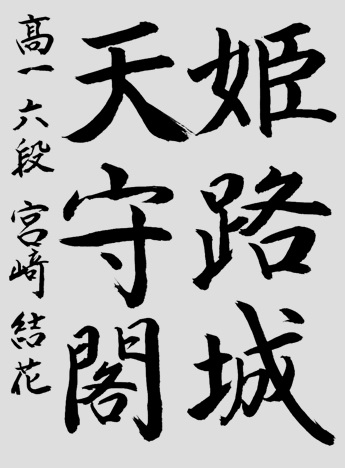 姫路城
天守閣
高一 六段 宮﨑 結花